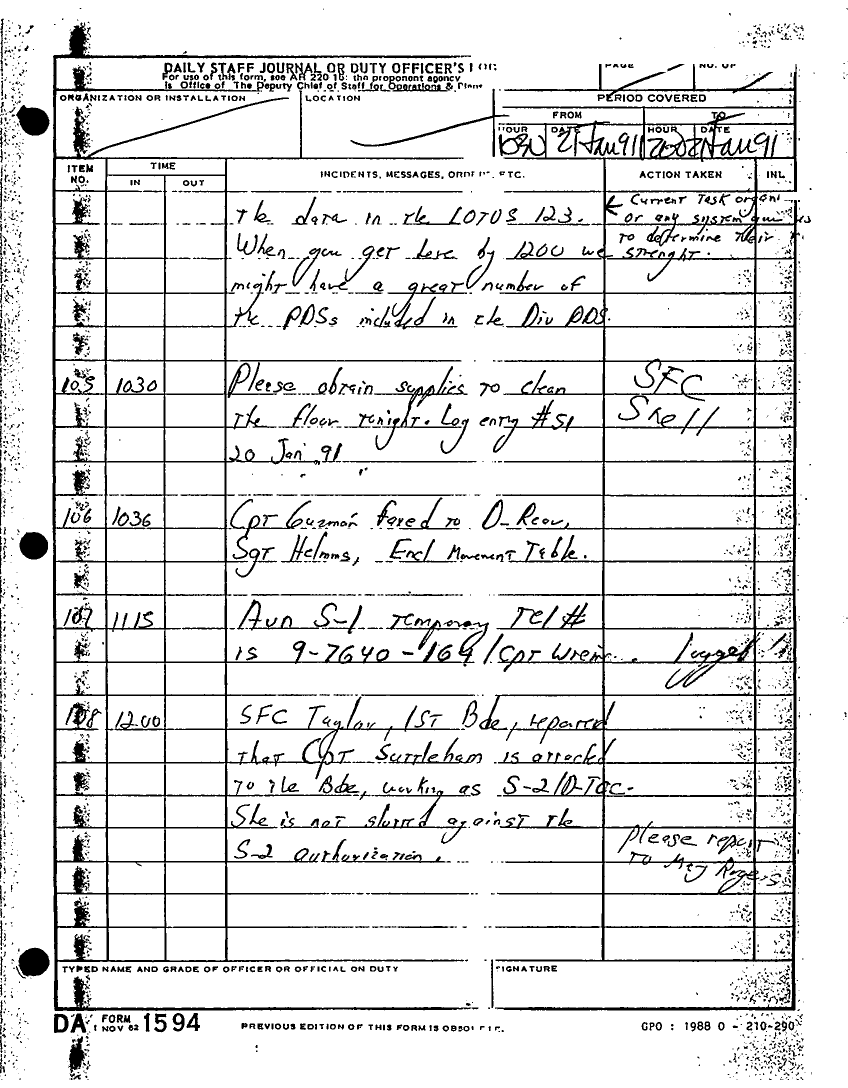 DAILY STAFF JOURNAL OR DUTY OFFICER'S
For use of this form, see AR 220 15: the proponent agency
is Office of The Deputy Chief of Staff for Operations &
PAGE NO. OF
ORGANIZATION OR INSTALLATION LOCATION PERIOD COVERED
FROM TO
HOUR DATE HOUR DATE
1030 21 Jan 91 2400 21 Jan 91
ITEM NO. TIME IN OUT INCIDENTS, MESSAGES, ORDERS, ETC. ACTION TAKEN INL
the data in the LOTUS 123. ← Current Task organi
When you get here by 1200 we or any system
might have a great number of to determine their
the PDSs included in the Div PDS. strenght.
105 1030 Please obtain supplies to clean SFC
the floor tonight. Log entry #51 Snell
20 Jan 91
106 1036 Cpt Guzmán faxed to D-Rear,
Sgt Helmms, Encl Movement Table.
107 1115 Avn S-1 temporary Tel #
is 9-7640-164 / Cpt logged
108 1200 SFC Taylor, 1ST Bde, repored
that Cpt Surrleham is attached
to the Bde, working as S-2/D-TOC.
She is not slotted against the
S-2 authorization. Please report
to Maj Rogers
TYPED NAME AND GRADE OF OFFICER OR OFFICIAL ON DUTY SIGNATURE
DA FORM 1 NOV 62 1594 PREVIOUS EDITION OF THIS FORM IS OBSOLETE. GPO : 1988 O - 210-290